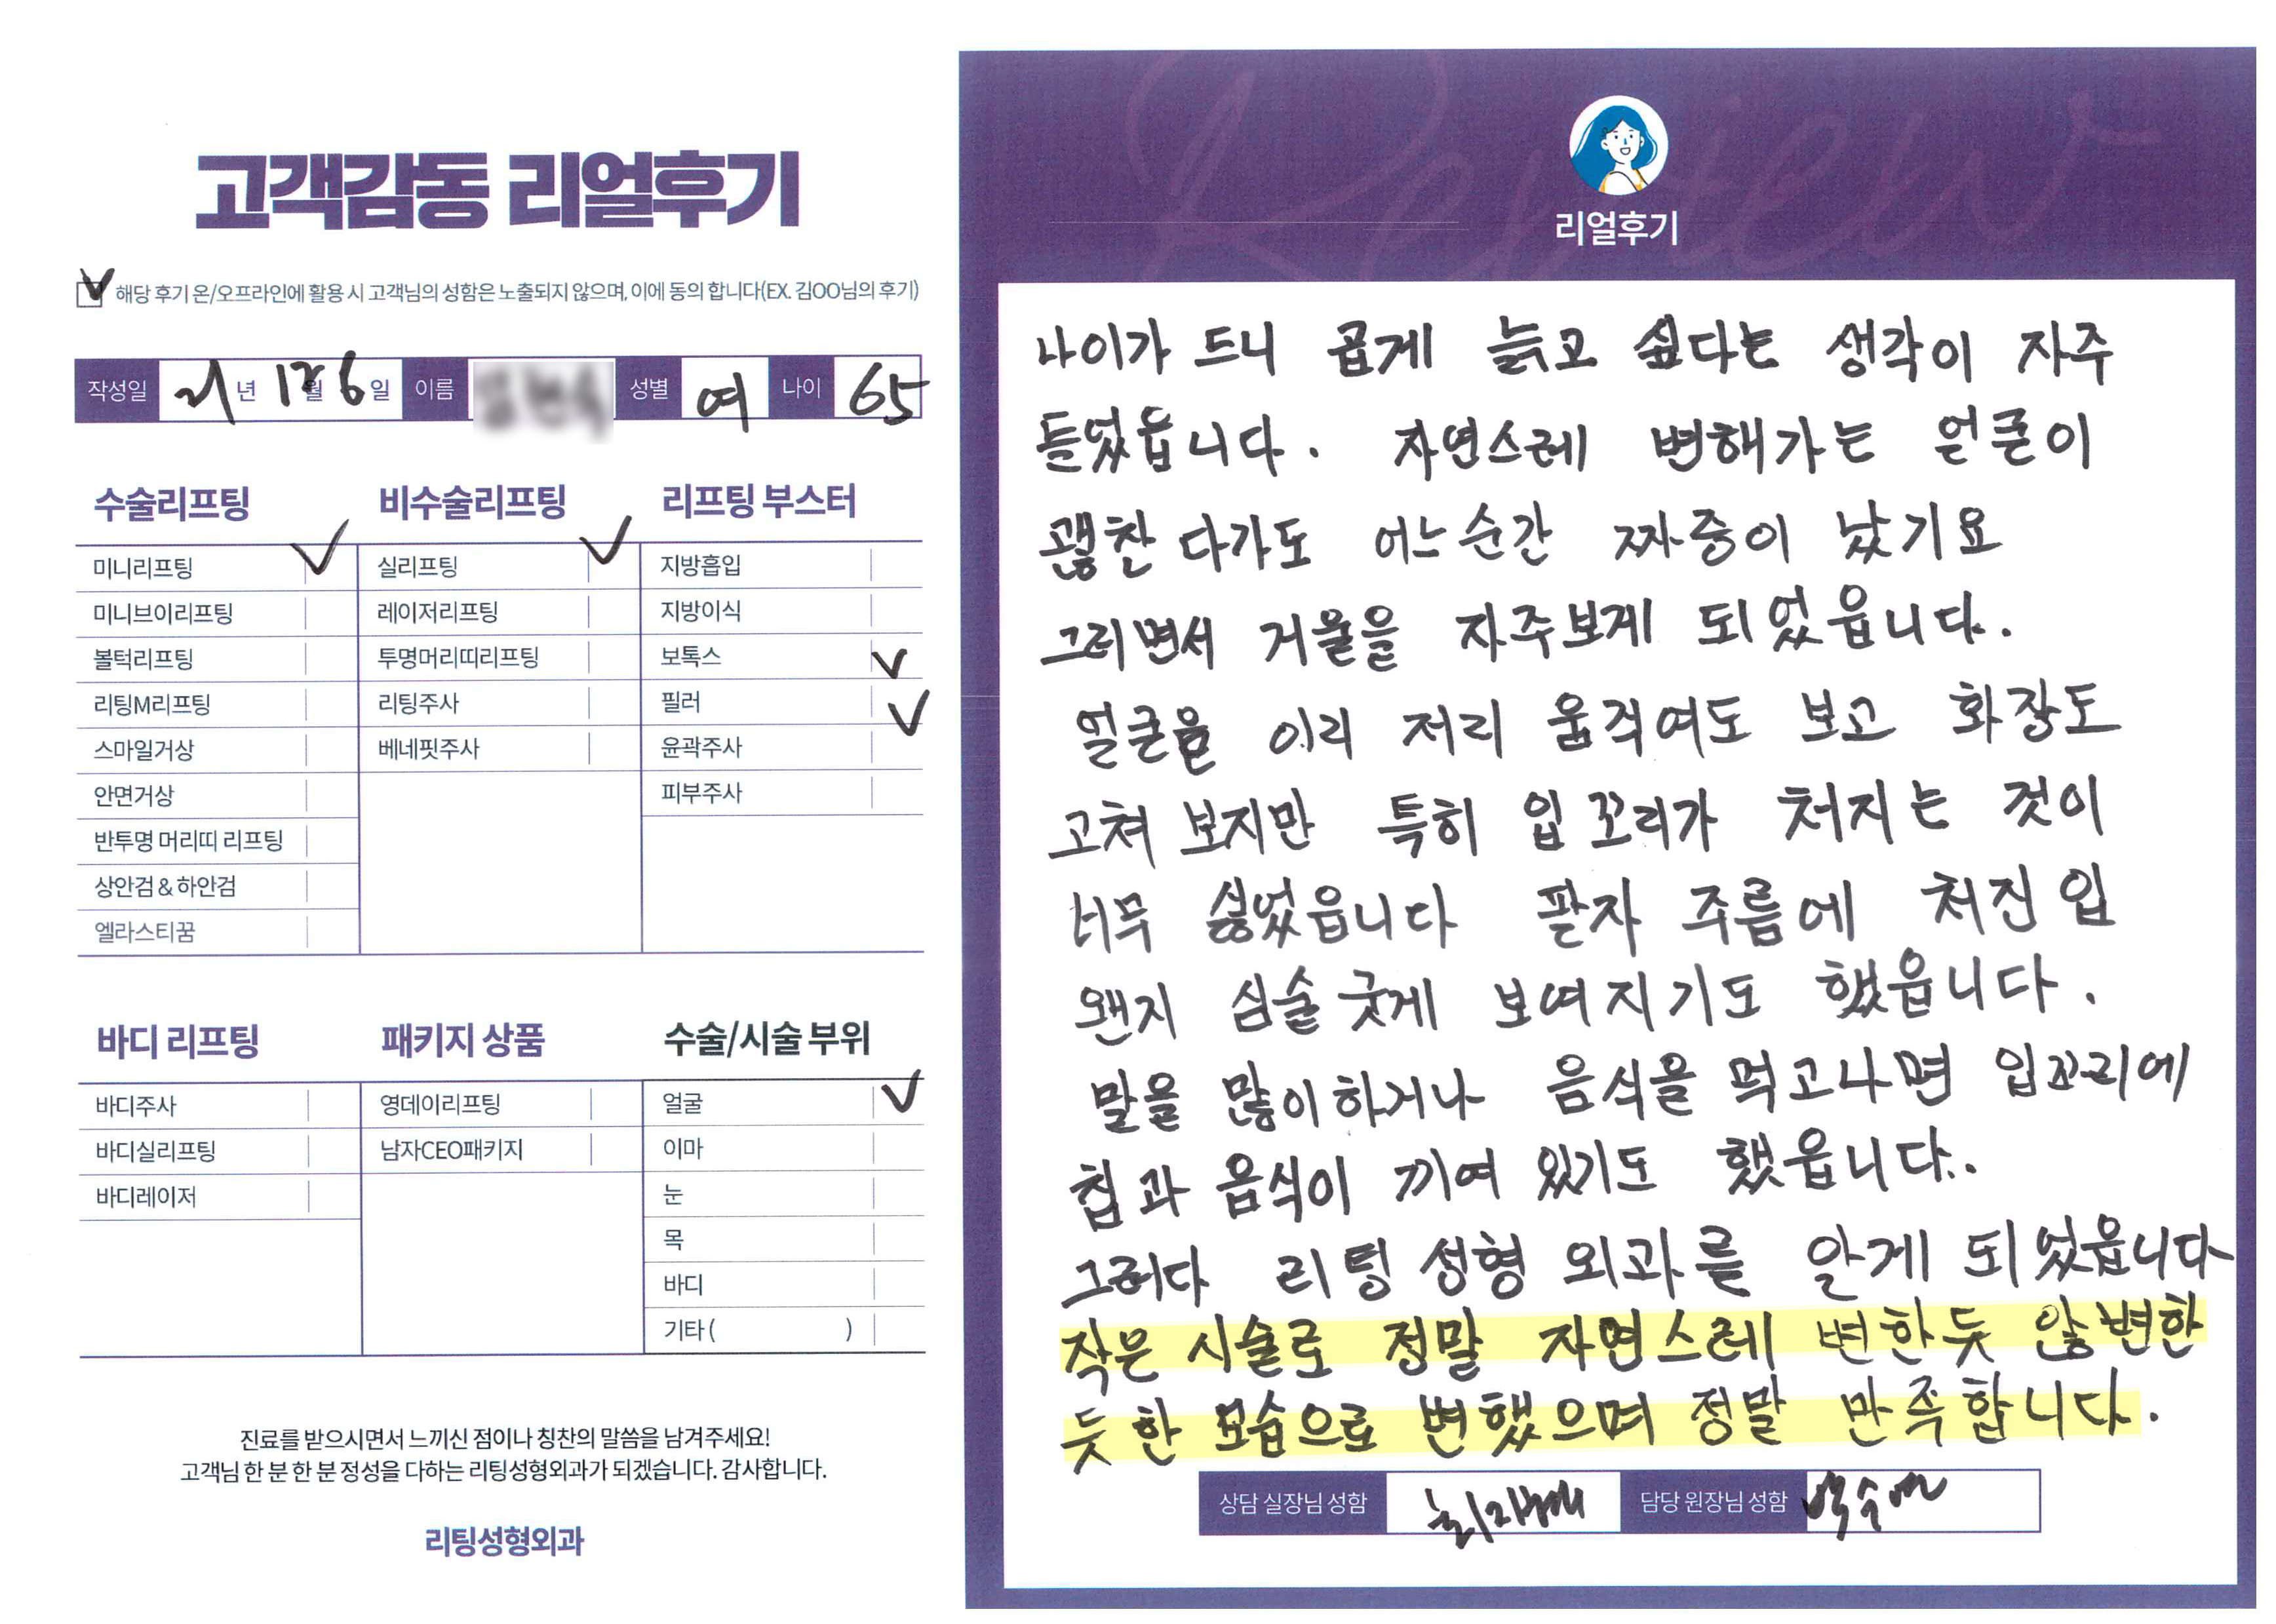 고객감동 리얼후기
해당 후기 온/오프라인에 활용 시 고객님의 성함은 노출되지 않으며, 이에 동의 합니다(EX. 김OO님의 후기)
작성일 21년 12월 6일 이름 성별 여 나이 65
수술리프팅
미니리프팅
미니브이리프팅
볼턱리프팅
리팅M리프팅
스마일거상
안면거상
반투명 머리띠 리프팅
상안검 & 하안검
엘라스티꿈
비수술리프팅
실리프팅
레이저리프팅
투명머리띠리프팅
리팅주사
베네핏주사
리프팅 부스터
지방흡입
지방이식
보톡스
필러
윤곽주사
피부주사
바디 리프팅
바디주사
바디실리프팅
바디레이저
패키지 상품
영데이리프팅
남자CEO패키지
수술/시술 부위
얼굴
이마
눈
목
바디
기타 ( )
진료를 받으시면서 느끼신 점이나 칭찬의 말씀을 남겨주세요!
고객님 한 분 한 분 정성을 다하는 리팅성형외과가 되겠습니다. 감사합니다.
리팅성형외과
Review
리얼후기
나이가 드니 곱게 늙고 싶다는 생각이 자주
들었읍니다. 자연스레 변해가는 얼굴이
괞찬다가도 어느순간 짜증이 났기요
그러면서 거울을 자주보게 되었읍니다.
얼굴을 이리 저리 움직여도 보고 화장도
고쳐 보지만 특히 입꼬리가 처지는 것이
너무 싫었읍니다 팔자 주름에 처진 입
왠지 심술 궂게 보여지기도 했읍니다.
말을 많이하거나 음식을 먹고나면 입꼬리에
침과 음식이 끼여 있기도 했읍니다..
그러다 리팅 성형 외과를 알게 되었읍니다
작은 시술로 정말 자연스레 변한듯 않변한
듯한 모습으로 변했으며 정말 만족합니다.
상담 실장님 성함
담당 원장님 성함